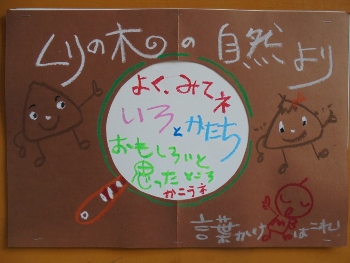 くりの木の自然より
よく、みてネ
いろとかたち
おもしろいと
思ったところ
かこうネ
言葉かけはこれ!